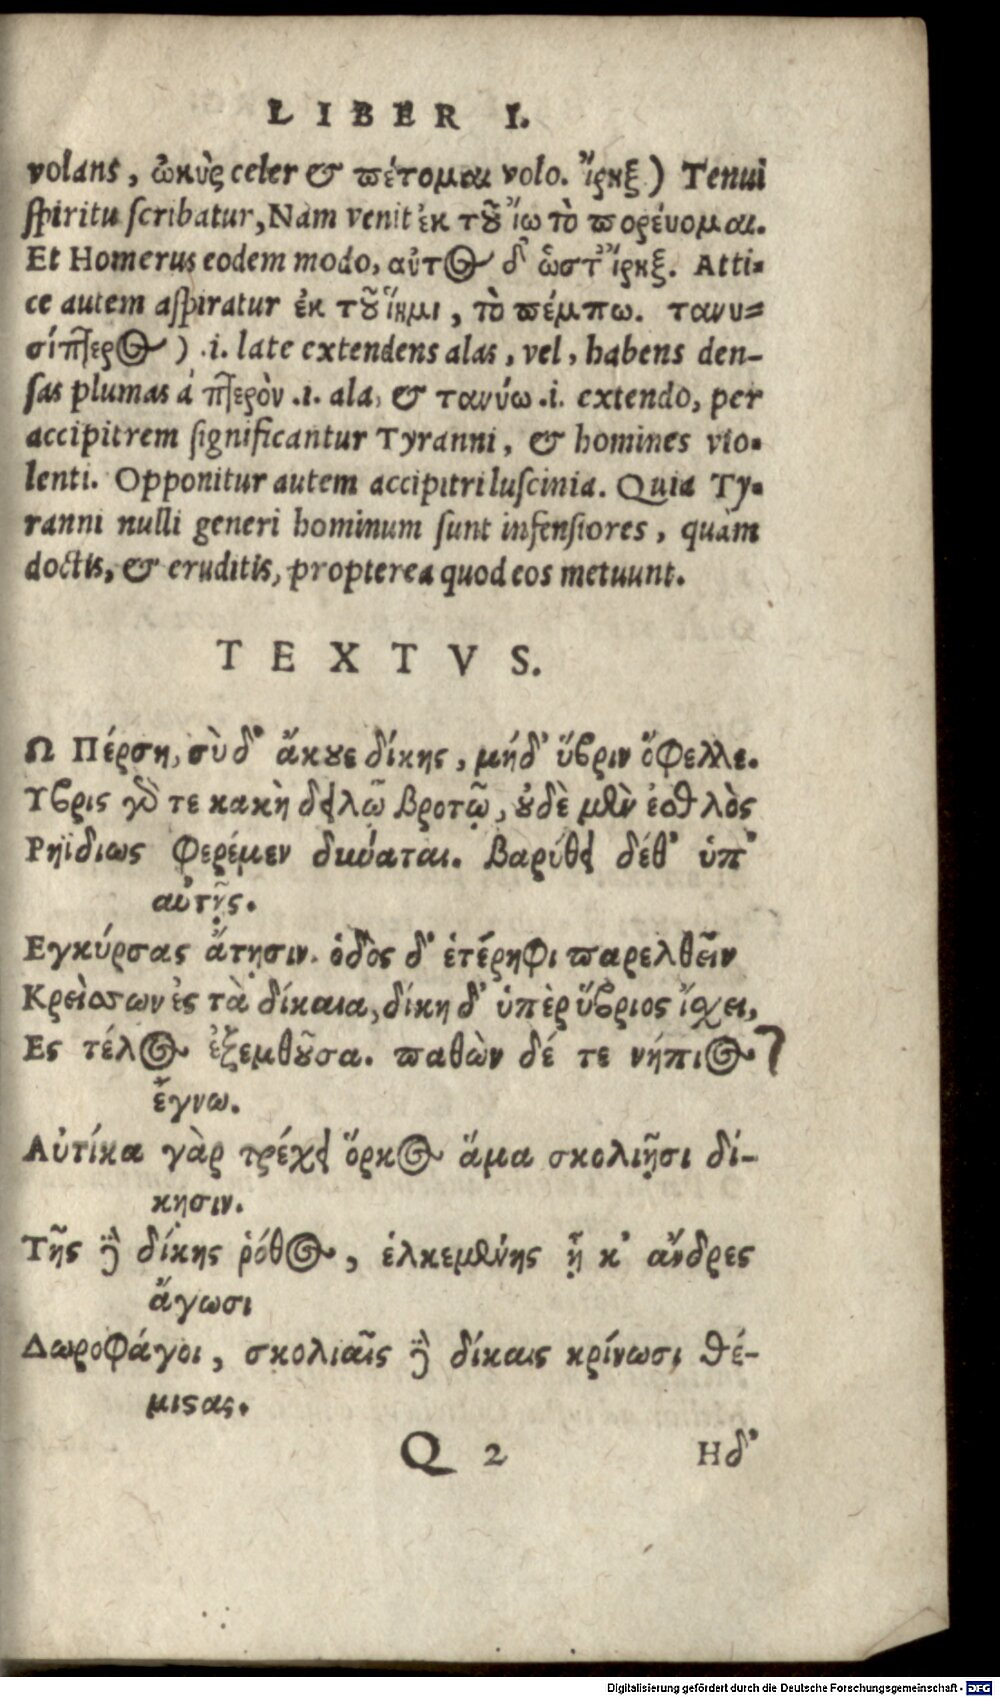 LIBER I.
volans, ὠκὺς celer & πέτομαι volo. ἴρηξ) Tenui
spiritu scribatur, Nam venit ἐκ τȣ͂ ἴω τὸ πορεύομαι.
Et Homerus eodem modo, αὐτος δ' ὥστ' ἴρηξ. Atti=
ce autem aspiratur ἐκ τȣ͂ ἵημι, τὸ πέμπω. τανυ=
σίπτερος) .i. late extendens alas, vel, habens den-
sas plumas á πτερὸν .i. ala, & τανύω .i. extendo, per
accipitrem significantur Tyranni, & homines vio=
lenti. Opponitur autem accipitri luscinia. Quia Ty=
ranni nulli generi hominum sunt infensiores, quàm
doctis, & eruditis, propterea quod eos metuunt.
TEXTVS.
Ω Πέρση, σὺ δ' ἄκȣε δίκης, μήδ' ὕβριν ὄφελλε.
Υβρις γάρ τε κακὴ δειλῷ βροτῷ, ȣδὲ μὲν ἐσθλὸς
Ρηϊδίως φερέμεν δύναται. βαρύθει δέθ' ὑπ'
αὐτῆς.
Εγκύρσας ἄτησιν. ὁδὸς δ' ἑτέρηφι παρελθεῖν
Κρείσσων ἐς τὰ δίκαια, δίκη δ' ὑπὲρ ὕβριος ἴσχει,
Ες τέλος ἐξελθȣ͂σα. παθὼν δέ τε νήπιος
ἔγνω.
Αὐτίκα γὰρ τρέχει ὅρκος ἅμα σκολιῇσι δί-
κησιν.
Τῆς δὲ δίκης ῥόθος, ἑλκεμένης ᾗ κ' ἄνδρες
ἄγωσι
Δωροφάγοι, σκολιαῖς δὲ δίκαις κρίνωσι θέ-
μιϛας.
Q 2 Ηδ'